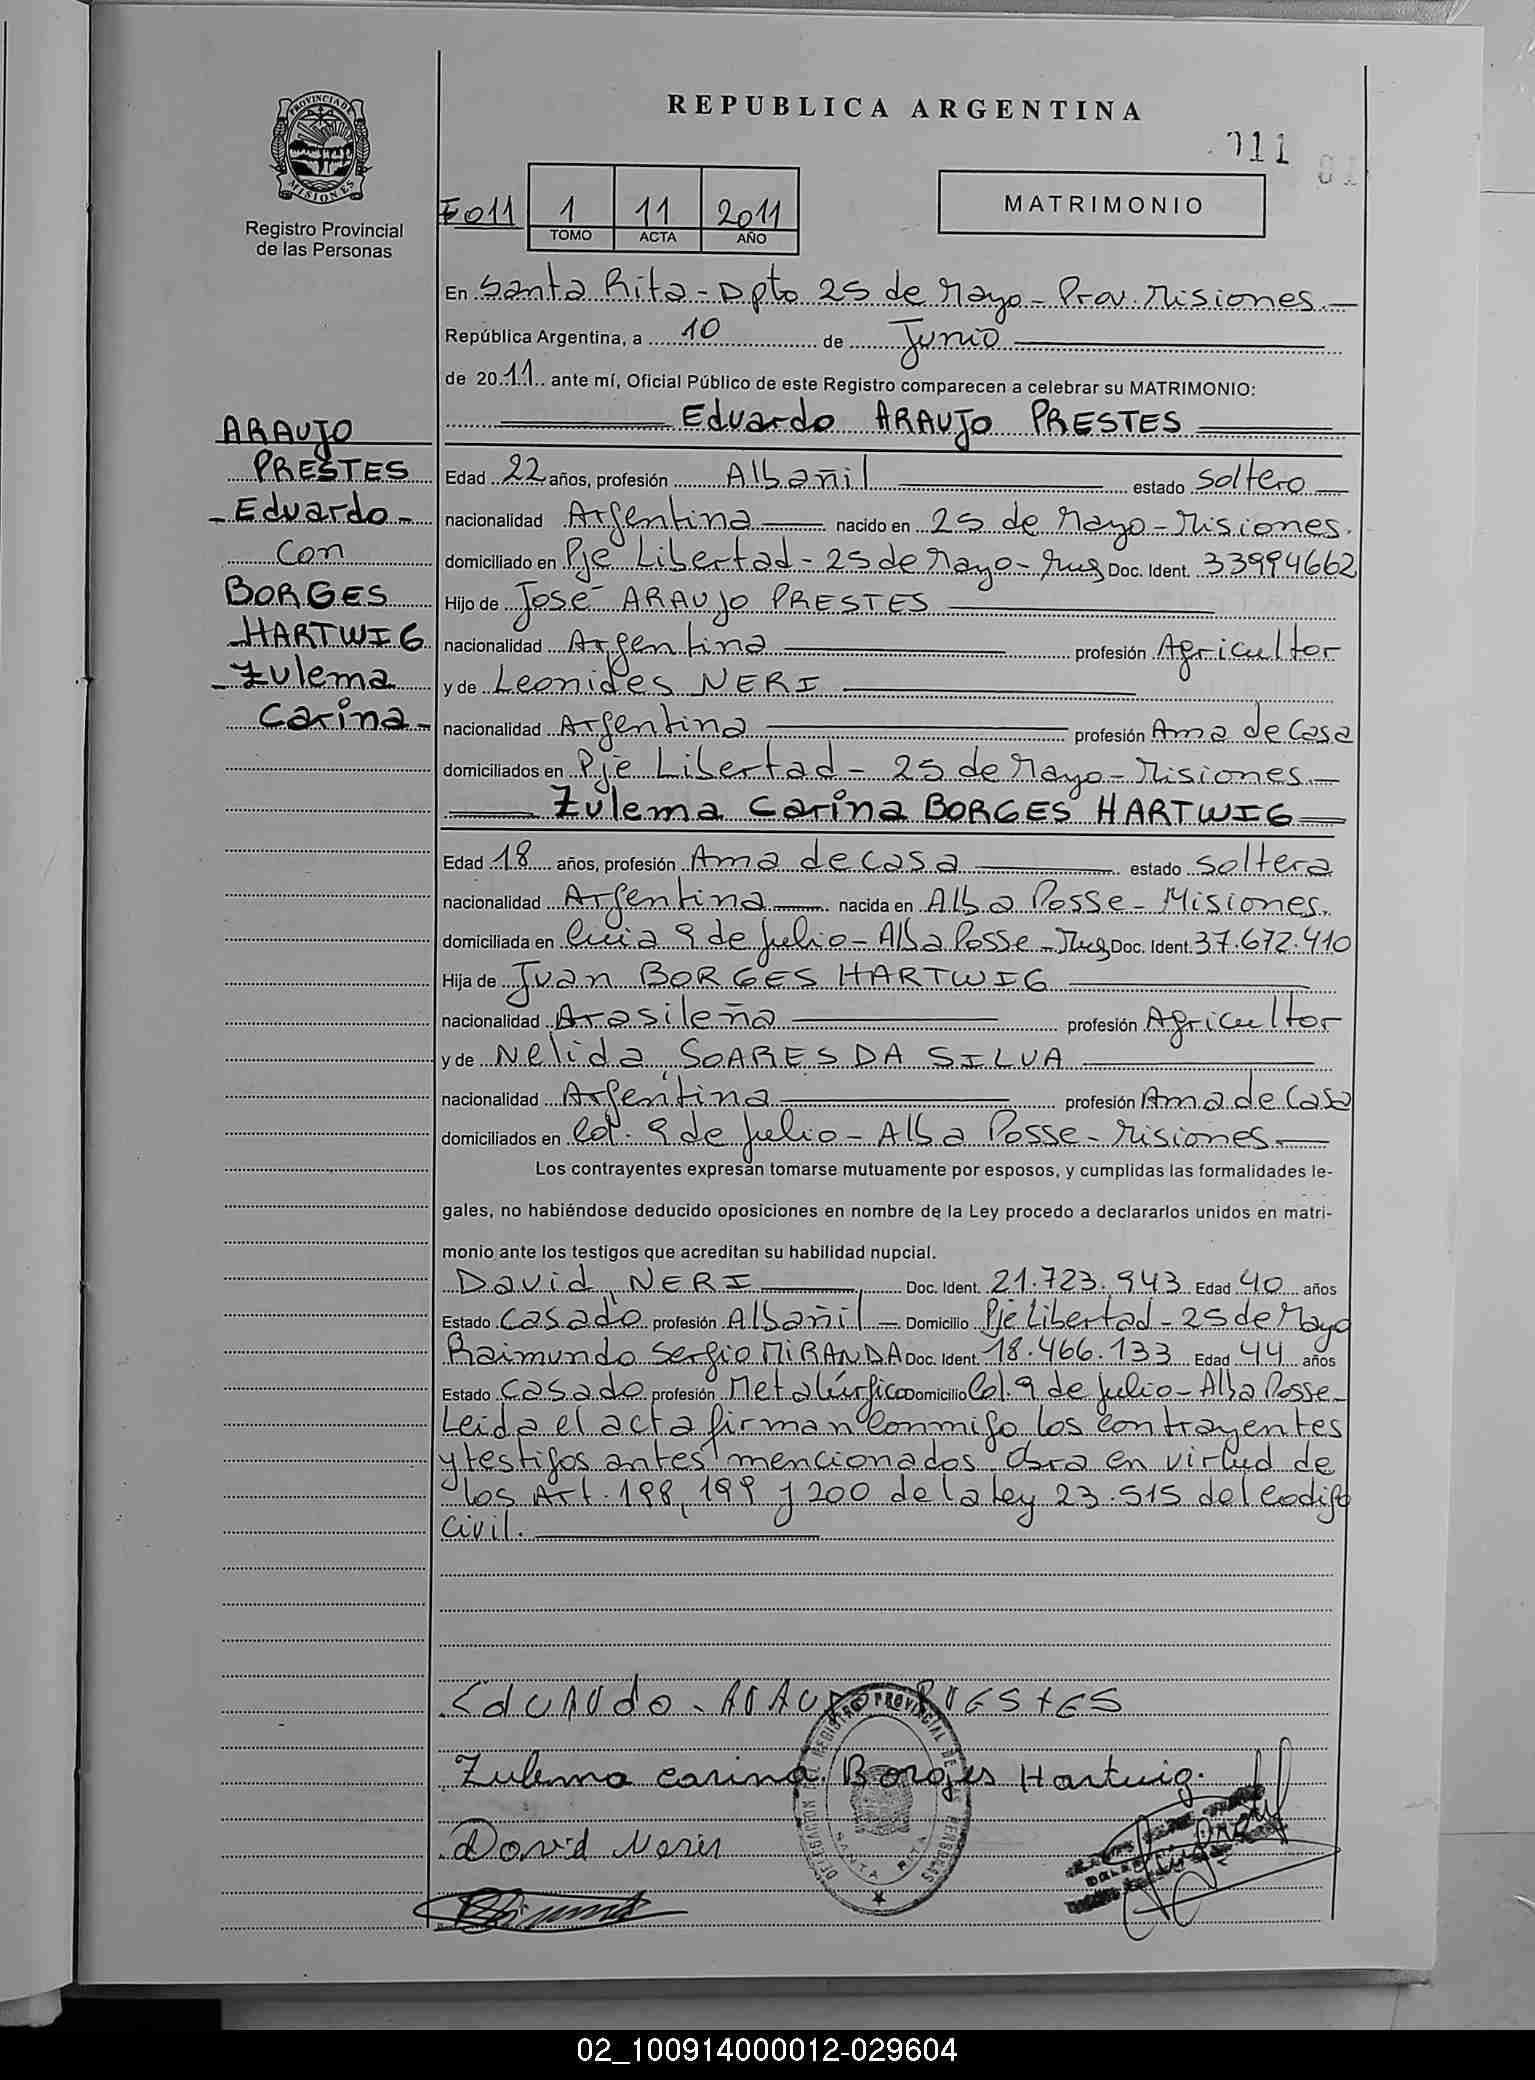 REPUBLICA ARGENTINA
011
PROVINCIA DE
MISIONES
Registro Provincial
de las Personas
F011
1
11
2011
TOMO
ACTA
AÑO
MATRIMONIO
En Santa Rita - Dpto 25 de Mayo - Prov. Misiones.
República Argentina, a 10 de Junio
de 2011 ante mí, Oficial Público de este Registro comparecen a celebrar su MATRIMONIO:
Eduardo ARAUJO PRESTES
ARAUJO
PRESTES
- Eduardo -
con
BORGES
HARTWIG
- Zulema
Carina -
Edad 22 años, profesión Albañil estado soltero
nacionalidad Argentina nacido en 25 de Mayo - Misiones.
domiciliado en Pje Libertad - 25 de Mayo - Mns Doc. Ident. 33994662
Hijo de José ARAUJO PRESTES
nacionalidad Argentina profesión Agricultor
y de Leonides NERI
nacionalidad Argentina profesión Ama de Casa
domiciliados en Pje Libertad - 25 de Mayo - Misiones.
Zulema Carina BORGES HARTWIG
Edad 18 años, profesión Ama de casa estado soltera
nacionalidad Argentina nacida en Alba Posse - Misiones.
domiciliada en 9 de Julio - Alba Posse - Mns Doc. Ident. 37.672.410
Hija de Juan BORGES HARTWIG
nacionalidad Arasileña profesión Agricultor
y de Nelida SOARES DA SILVA
nacionalidad Argentina profesión Ama de Casa
domiciliados en Col. 9 de Julio - Alba Posse - Misiones.
Los contrayentes expresan tomarse mutuamente por esposos, y cumplidas las formalidades le-
gales, no habiéndose deducido oposiciones en nombre de la Ley procedo a declararlos unidos en matri-
monio ante los testigos que acreditan su habilidad nupcial.
David NERI Doc. Ident. 21.723.943 Edad 40 años
Estado Casado profesión Albañil Domicilio Pje Libertad - 25 de Mayo
Raimundo Sergio MIRANDA Doc. Ident. 18.466.133 Edad 44 años
Estado Casado profesión Metalúrgico Domicilio Col. 9 de Julio - Alba Posse -
Leida el acta firman conmigo los contrayentes
y testigos antes mencionados. Obra en virtud de
los Art. 198, 199 y 200 de la ley 23.515 del Codigo
Civil.
Eduardo ARAUJO PRESTES
Zulema Carina Borges Hartwig.
David Neris
DELEGACION DEL REGISTRO PROVINCIAL DE LAS PERSONAS
SANTA RITA
02_100914000012-029604